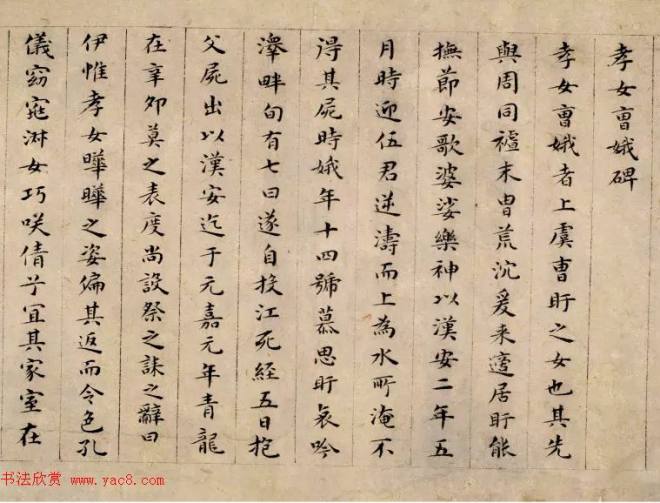 孝女曺娥碑
孝女曺娥者上虞曺盱之女也其先
與周同禋末胄荒沉爰来適居盱能
撫節安歌婆娑樂神以漢安二年五
月時迎伍君逆濤而上為水所淹不
得其屍時娥年十四號慕思盱哀吟
澤畔旬有七日遂自投江死經五日抱
父屍出以漢安迄于元嘉元年青龍
在辛卯莫之表度尚設祭之誄之辭曰
伊惟孝女曄曄之姿偏其返而令色孔
儀窈窕淋女巧咲倩兮宜其家室在
书法欣赏 www.yac8.com